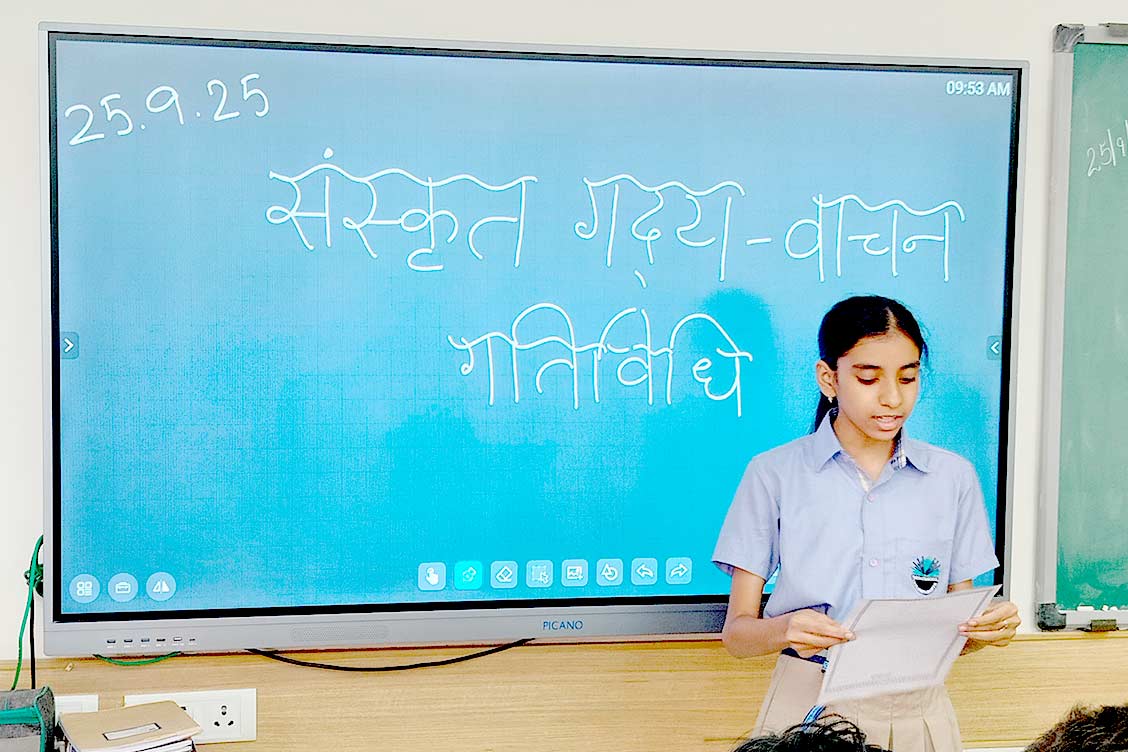 25.9.25
09:53 AM
संस्कृत गद्य - वाचन
गतिविधि
PICANO
25/9/